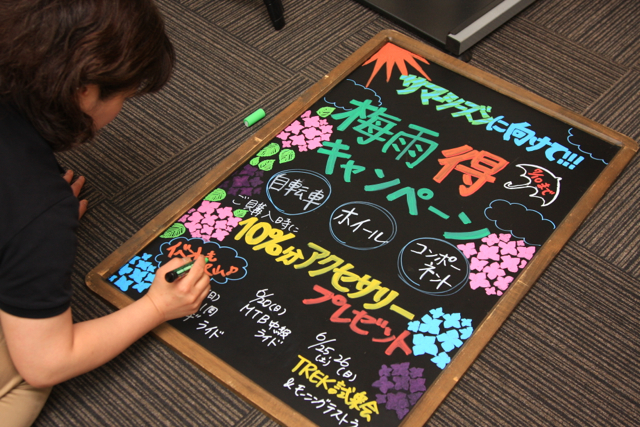 サマーシーズンに向けて!!!
梅雨得
7/10まで
キャンペーン
自転車
ホイール
コンポーネント
ご購入時に
10%分アクセサリー
プレゼント
イベントも
6/20(日)
MTB中級
ライド
ライド
6/25,26
(土)(日)
TREK試乗会
&モーニングラストラ